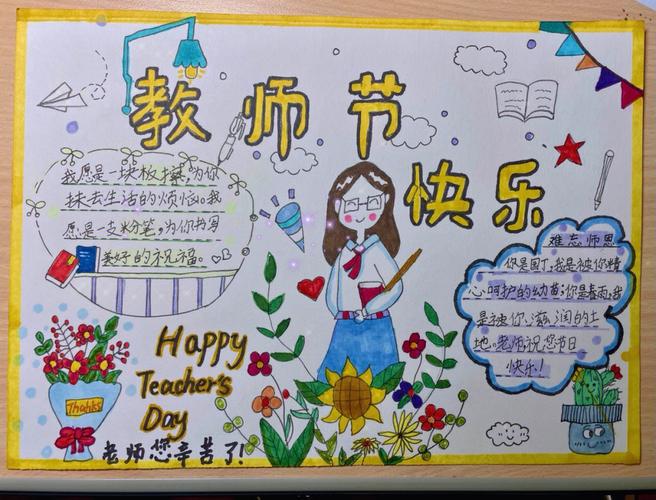 教师节
快乐
我愿是一块板擦,为你
抹去生活的烦恼。我
愿是一支粉笔,为你书写
美好的祝福。
难忘师恩
你是园丁,我是被你精
心呵护的幼苗;你是春雨,我
是被你滋润的土
地。老师祝您节日
快乐!
Happy
Teacher's
Day
Thanks
老师您辛苦了!